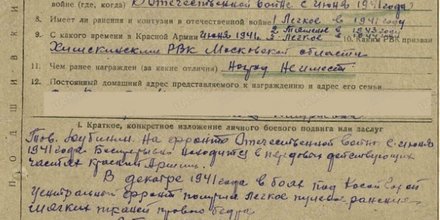 войне (где, когда) в Отечественной войне с июня 1941 года
8. Имеет ли ранения и контузии в отечественной войне 1 Легкое в 1941 году
2. Тяжелое в 1943 году
9. С какого времени в Красной Армии июнь 1941 г. 3 Легкое в 1944 10. Каким РВК призван
Химкинским РВК Московской области
11. Чем ранее награжден (за какие отличия) Наград не имеет
12. Постоянный домашний адрес представляемого к награждению и адрес его семьи
I. Краткое, конкретное изложение личного боевого подвига или заслуг
Тов. На фронте Отечественной войне с июня
1941 года. Беспрерывно находится в передовой действующих
частях красной Армии.
В декабре 1941 года в боях под
Центральный фронт получил Легкое пулевое ранение
мягких тканей правого бедра.
ПОДШИВКИ